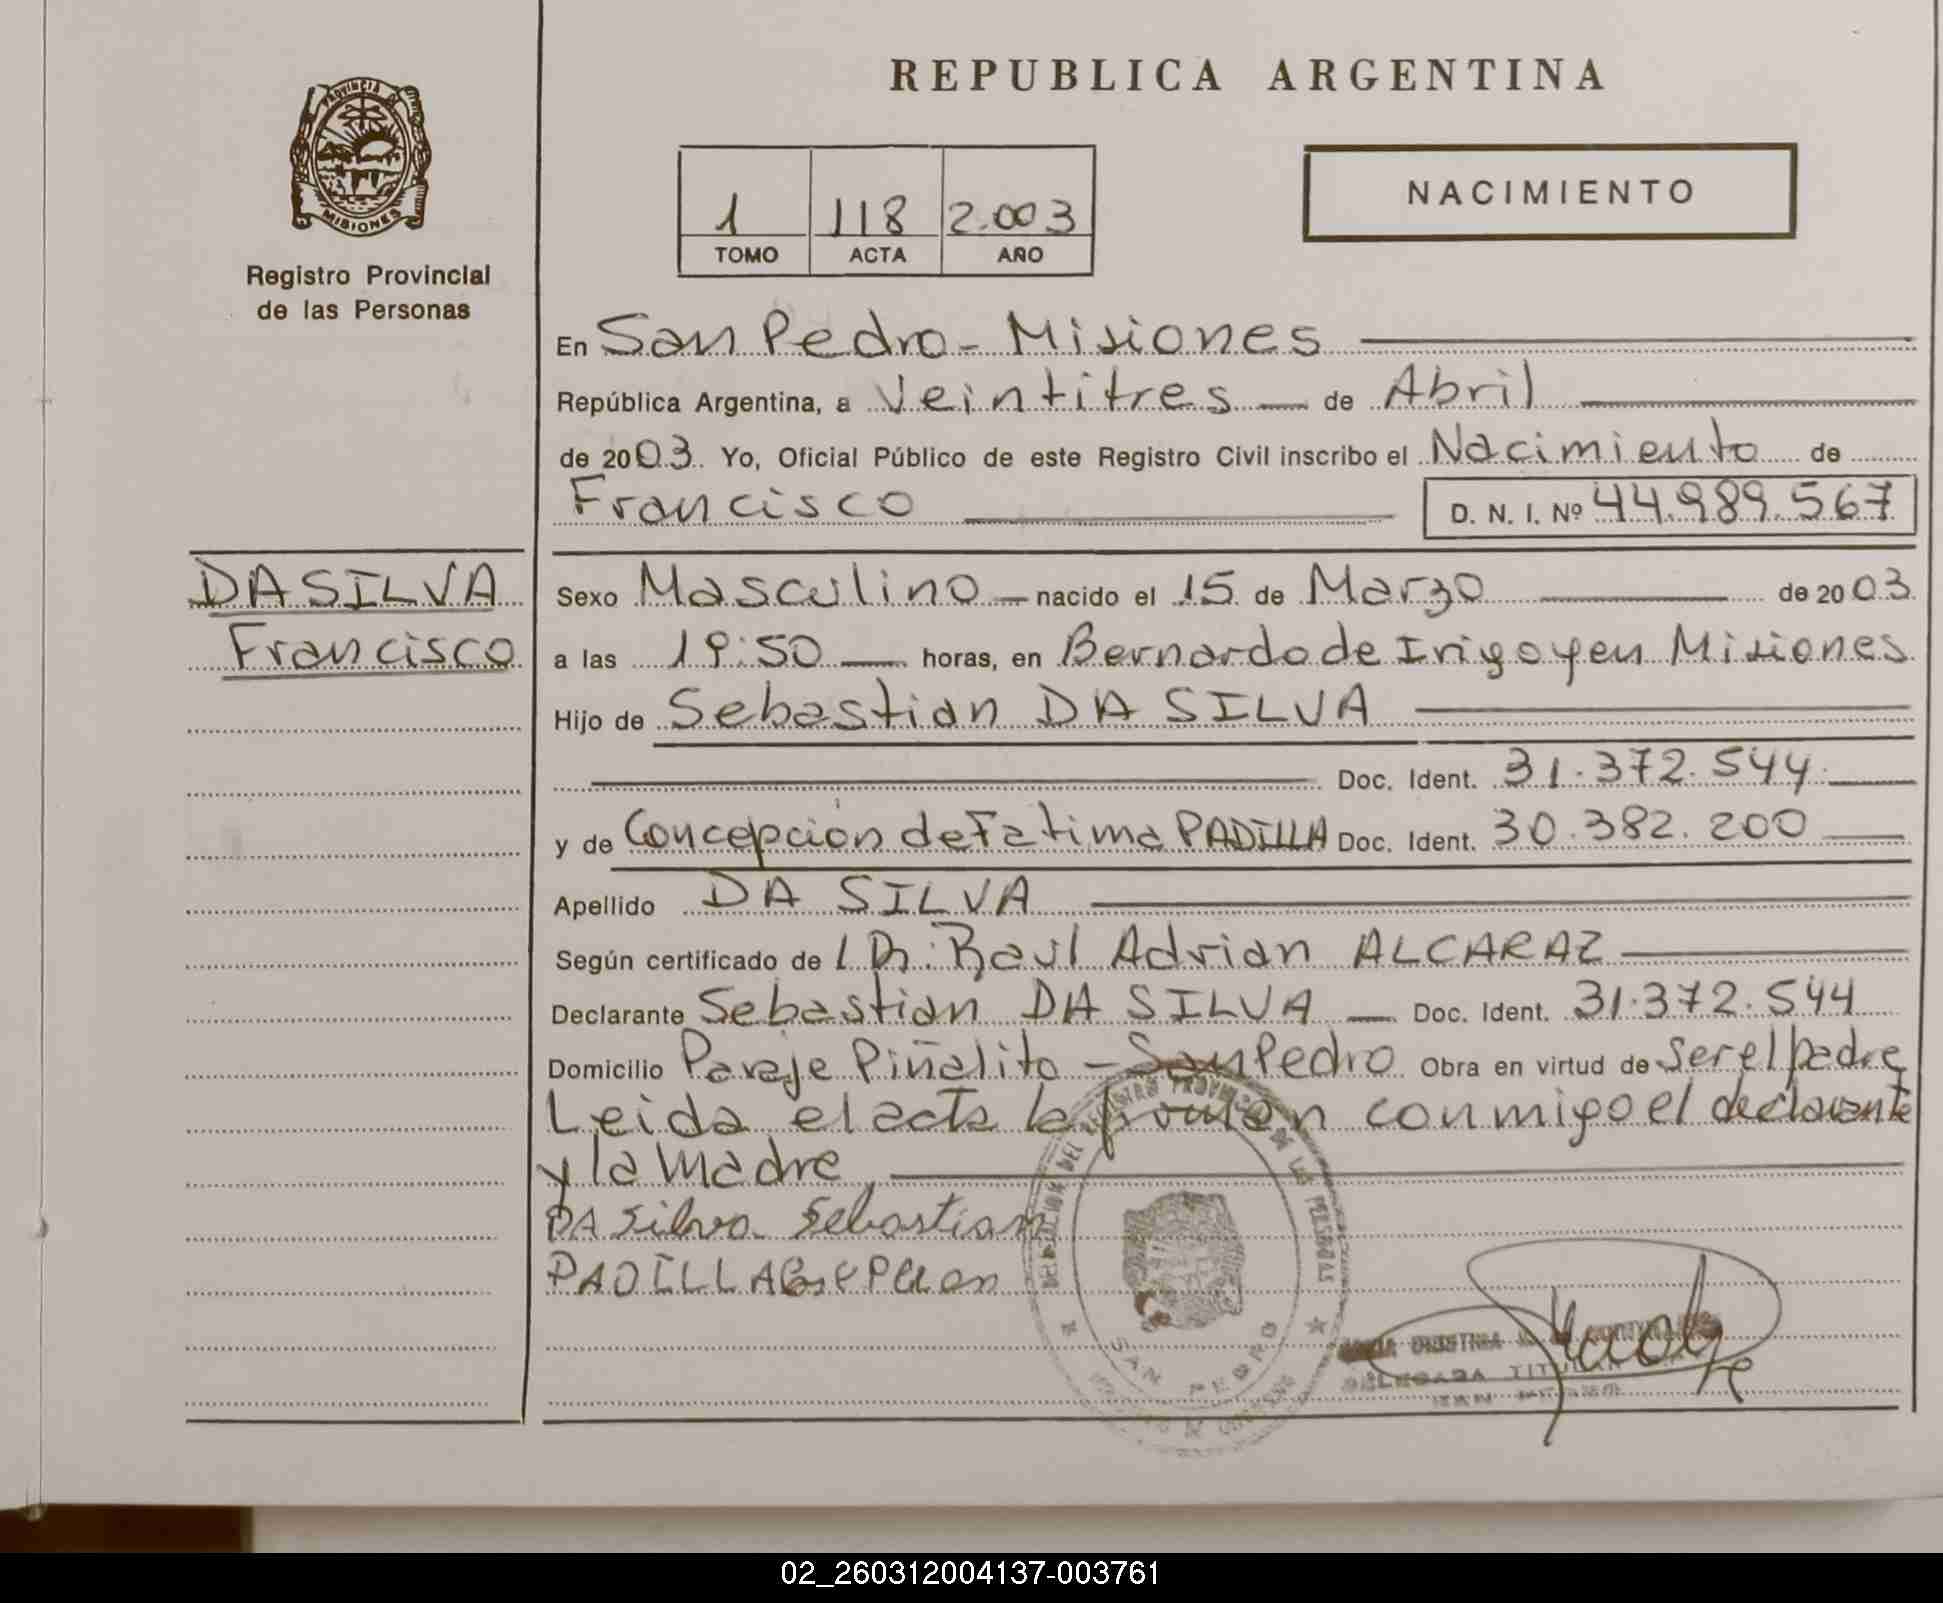 REPUBLICA ARGENTINA
PROVINCIA DE
MISIONES
Registro Provincial
de las Personas
1 118 2.003
TOMO ACTA AÑO
NACIMIENTO
En San Pedro - Misiones
República Argentina, a Veintitres de Abril
de 2003. Yo, Oficial Público de este Registro Civil inscribo el Nacimiento de
Francisco D. N. I. Nº 44.989.567
DA SILVA
Francisco
Sexo Masculino nacido el 15 de Marzo de 2003
a las 19:50 horas, en Bernardo de Irigoyen Misiones
Hijo de Sebastian DA SILVA
Doc. Ident. 31.372.544
y de Concepción de Fatima PADILLA Doc. Ident. 30.382.200
Apellido DA SILVA
Según certificado de Dr: Raul Adrian ALCARAZ
Declarante Sebastian DA SILVA Doc. Ident. 31.372.544
Domicilio Paraje Piñalito - San Pedro Obra en virtud de Ser el padre
Leida el acta la firman conmigo el declarante
y la madre
DA Silva Sebastian
PADILLA
DEL REGISTRO PROVINCIAL DE LAS PERSONAS
SAN PEDRO
TITULAR
02_260312004137-003761